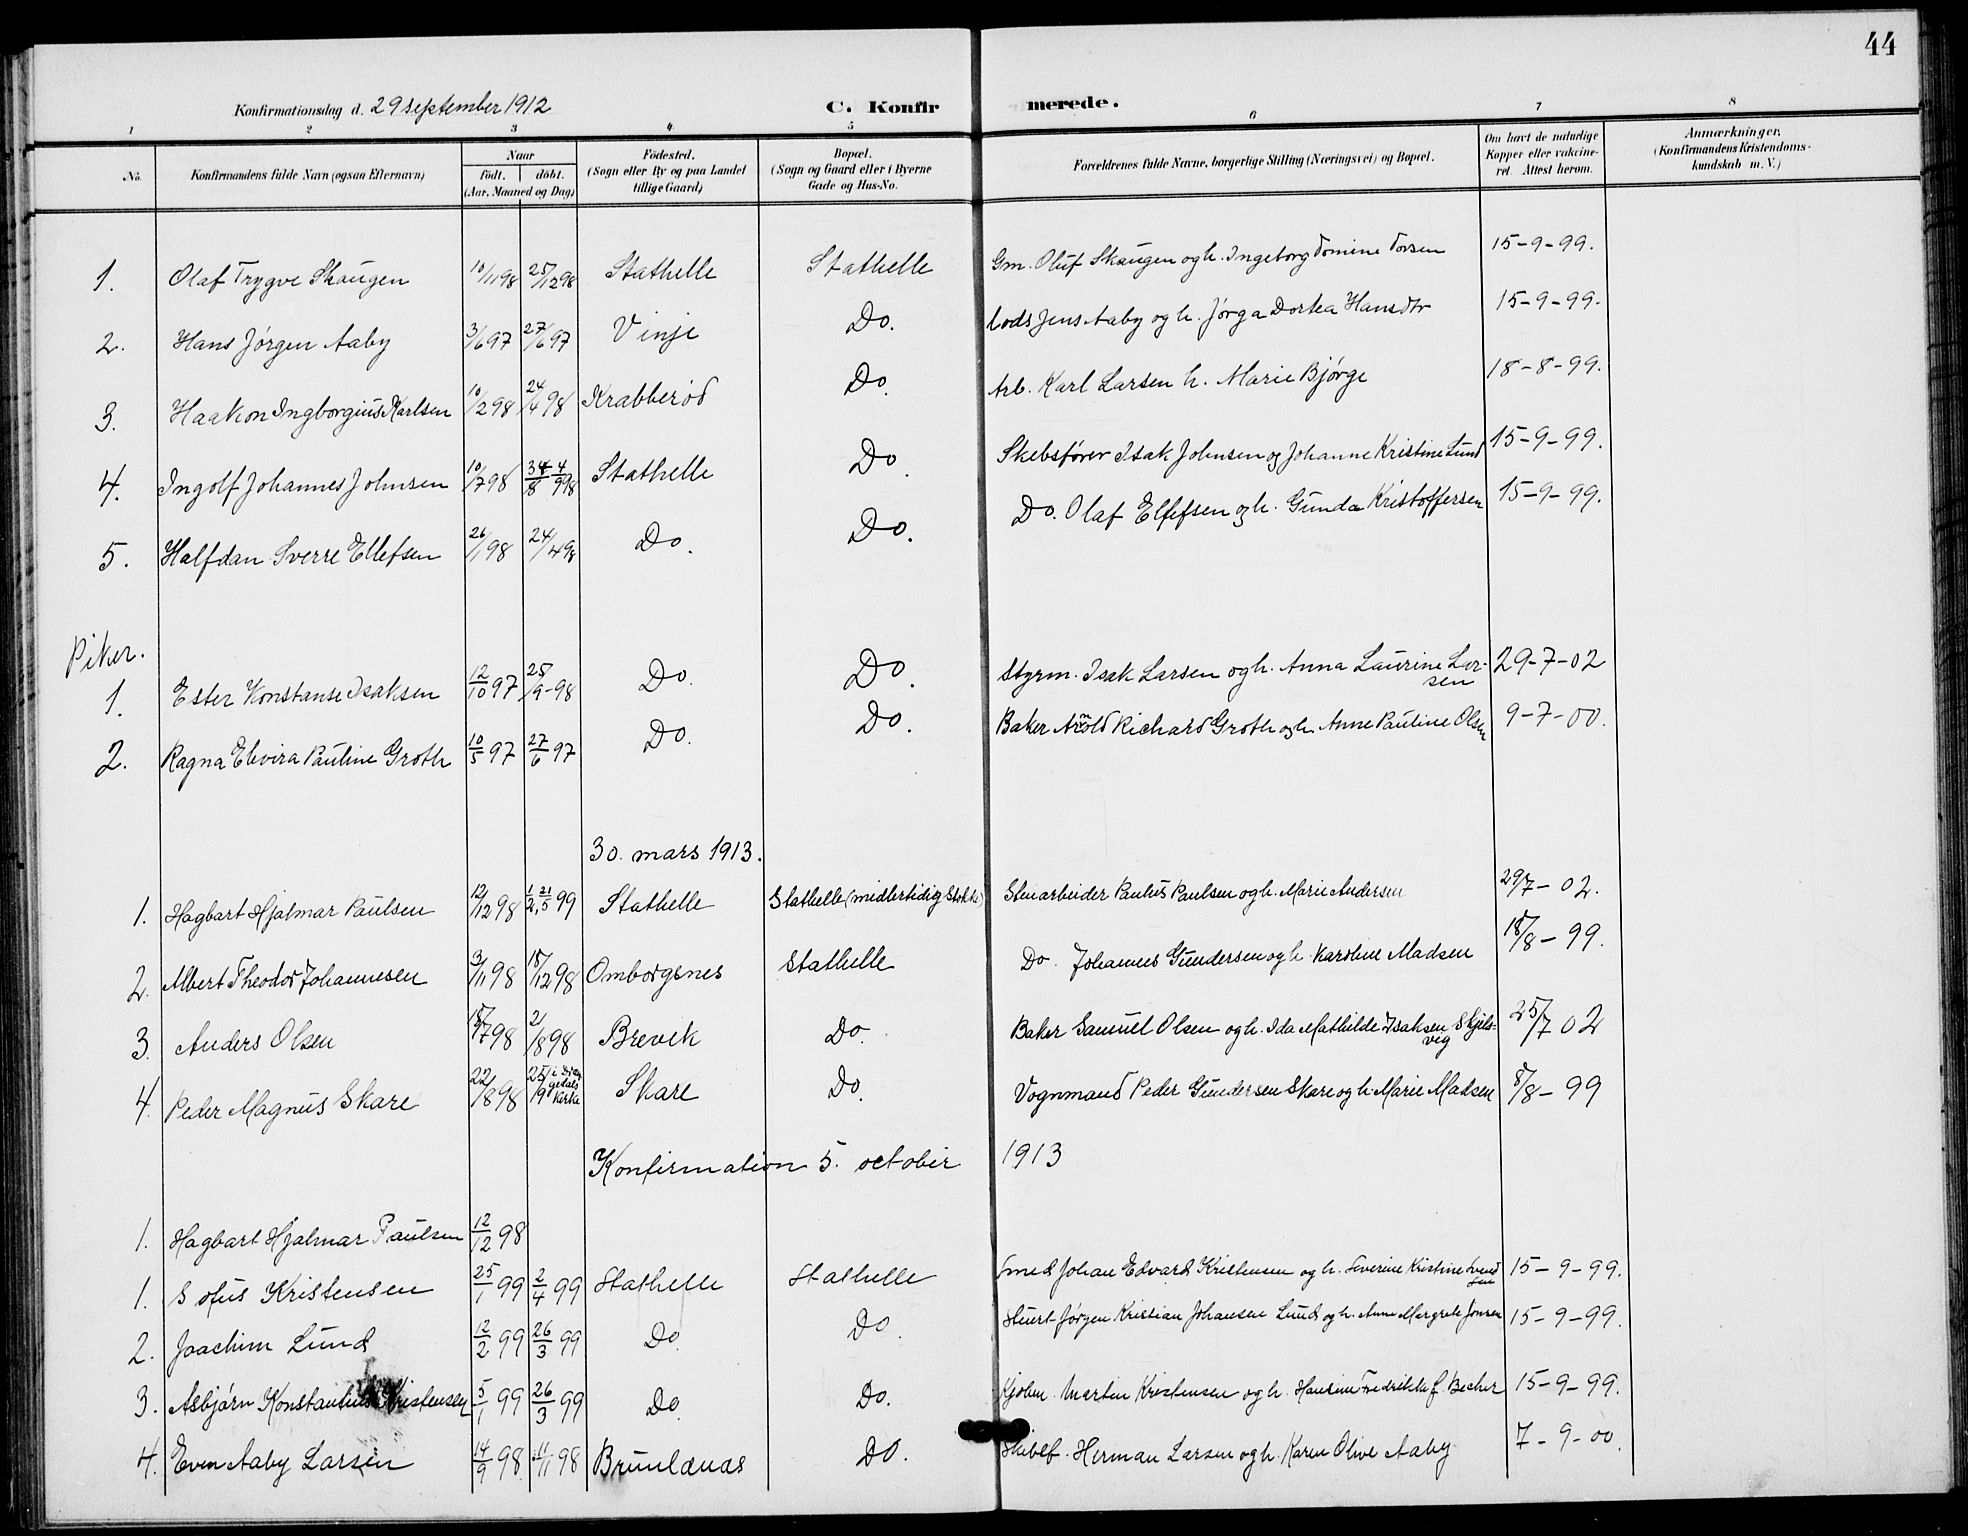 44
Konfirmationsdag d. 29 september 1912 C. Konfirmerede.
1 2 3 4 5 6 7 8
No. Konfirmandens fulde Navn (ogsaa Efternavn) Naar født. døbt. (Aar, Maaned og Dag) Fødested. (Sogn eller By og paa Landet tillige Gaard) Bopæl. (Sogn og Gaard eller i Byerne Gade og Hus-No. Forældrenes fulde Navne, borgerlige Stilling (Næringsvei) og Bopæl. Om havt de naturlige Kopper eller vakcineret. Attest herom. Anmærkninger. (Konfirmandens Kristendomskundskab m. V.)
1. Olaf Trygve Skaugen 10/11 98 25/12 98 Stathelle Stathelle Gm. Oluf Skaugen og h. Ingeborg Tomine Torsen 15-9-99.
2. Hans Jørgen Aaby 3/6 97 27/6 97 Vinje Do. Lods Jens Aaby og h. Jørga Dorthea Hansdtr 15-9-99.
3. Haakon Ingborgius Karlsen 10/2 98 24/4 98 Krabberød Do. Arb. Karl Larsen h. Marie Bjørge 18-8-99.
4. Ingolf Johannes Johnsen 10/7 98 4/9 98 Stathelle Do. Skibsfører Isak Johnsen og Johanne Kristine Lund 15-9-99.
5. Halfdan Sverre Ellefsen 26/1 98 24/4 98 Do. Do. Do. Olaf Ellefsen og h. Gunda Kristoffersen 15-9-99.
Piker.
1. Ester Konstanse Isaksen 12/10 97 25/9-98 Do. Do. Styrm. Isak Larsen og h. Anna Laurine Larsen 29-7-02
2. Ragna Elivira Pauline Groth 10/5 97 27/6 97 Do. Do. Baker Arnold Richard Groth og h. Anne Pauline Olsen 9-7-00.
30. mars 1913.
1. Hagbart Hjalmar Paulsen 12/12 98 1/2, 21/5 99 Stathelle Stathelle (midlertidig Stokke) Stenarbeider Paulus Paulsen og h. Marie Andersen 29/7-02.
2. Albert Theodor Johannesen 3/11 98 18/12 98 Omborgsnes Stathelle Do. Johannes Gundersen og h. Karoline Madsen 18/8-99.
3. Anders Olsen 15/7 98 21/8 98 Brevik Do. Baker Samuel Olsen og h. Ida Mathilde Isaksen Skjelsvig 25/7 02
4. Peder Magnus Skare 22/8 98 25/9 i Kirke Skare Do. Vognmand Peder Gundersen Skare og h. Marie Madsen 8/8-99
Konfirmation 5. october 1913
1. Hagbart Hjalmar Paulsen 12/12 98
1. Sofus Kristensen 25/1 99 2/4 99 Stathelle Stathelle Smed Johan Edvard Kristensen og h. Severine Kristine Svendsen 15-9-99.
2. Joachim Lund 12/2 99 26/3 99 Do. Do. Stuert Jørgen Kristian Johansen Lund og h. Anne Margrete Jonsen 15-9-99.
3. Asbjørn Konstantius Kristensen 5/1 99 26/3 99 Do. Do. Kjøbm. Marten Kristensen og h. Hansine Fredrikke f. Becher 15-9-99.
4. Even Aaby Larsen 14/9 98 11/11 98 Brunlanæs Do. Skibsf. Herman Larsen og h. Karen Olive Aaby 7-9-00.